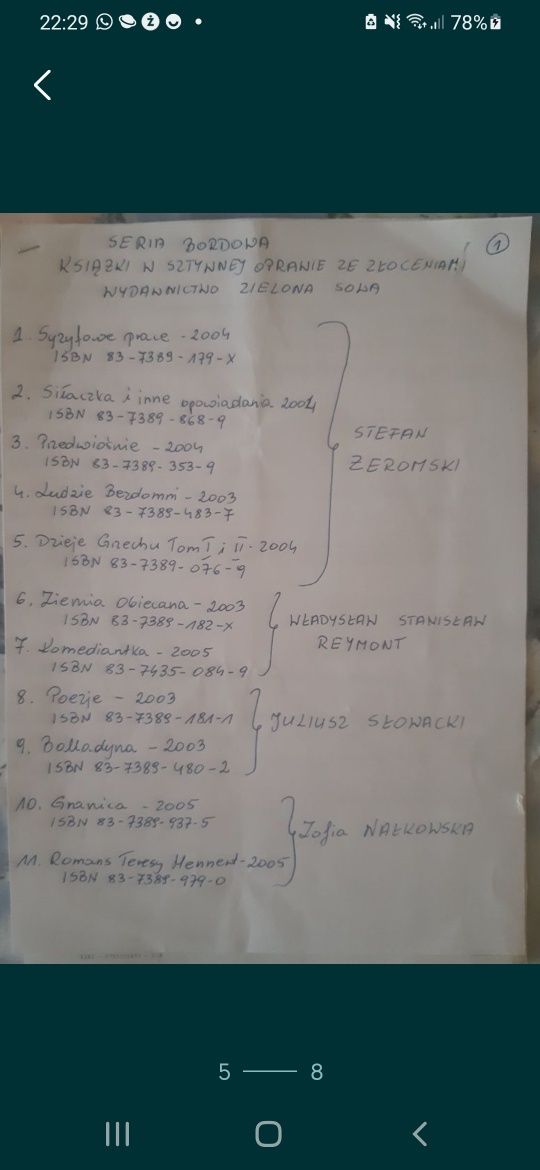 22:29
78%
1
SERIA BORDOWA
KSIĄŻKI W SZTYWNEJ OPRAWIE ZE ZŁOCENIAMI
WYDAWNICTWO ZIELONA SOWA
1. Syzyfowe prace - 2004
ISBN 83-7389-179-X
2. Siłaczka i inne opowiadania 2004
ISBN 83-7389-868-9
3. Przedwiośnie - 2004
ISBN 83-7389-353-9
4. Ludzie Bezdomni - 2003
ISBN 83-7389-483-7
5. Dzieje Grzechu Tom I i II - 2004
ISBN 83-7389-076-9
STEFAN
ŻEROMSKI
6. Ziemia Obiecana - 2003
ISBN 83-7389-182-X
7. Komediantka - 2005
ISBN 83-7435-084-9
WŁADYSŁAW STANISŁAW
REYMONT
8. Poezje - 2003
ISBN 83-7389-181-1
9. Balladyna - 2003
ISBN 83-7389-480-2
JULIUSZ SŁOWACKI
10. Granica - 2005
ISBN 83-7389-937-5
11. Romans Teresy Hennert - 2005
ISBN 83-7389-979-0
Zofia NAŁKOWSKA
5 — 8